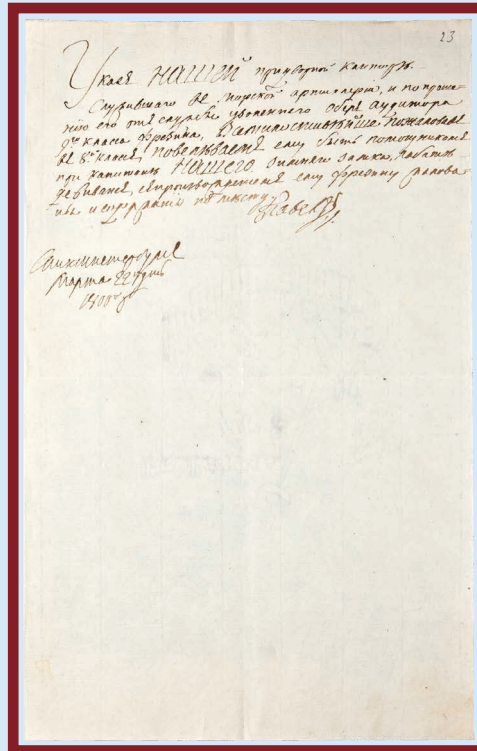 23
Указъ НАШЕЙ придворной канторѣ.
Служившаго въ морской артиллеріи, и по проше-
нію его отъ службы уволеннаго Оберъ аудитора
9го класса Фребина, Всемилостивѣйше пожаловавъ
въ 8й классъ, повелѣваемъ ему быть помощникомъ
при капитанѣ НАШЕГО зимняго замка,
съ произвожденіемъ ему Фребину жалова-
нья и по мѣсту.
Павелъ
Санктпетербургъ
Марта 22го дня
1800го